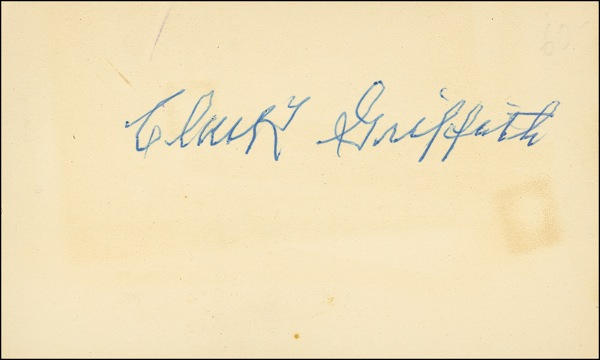 Clark Griffith
60-